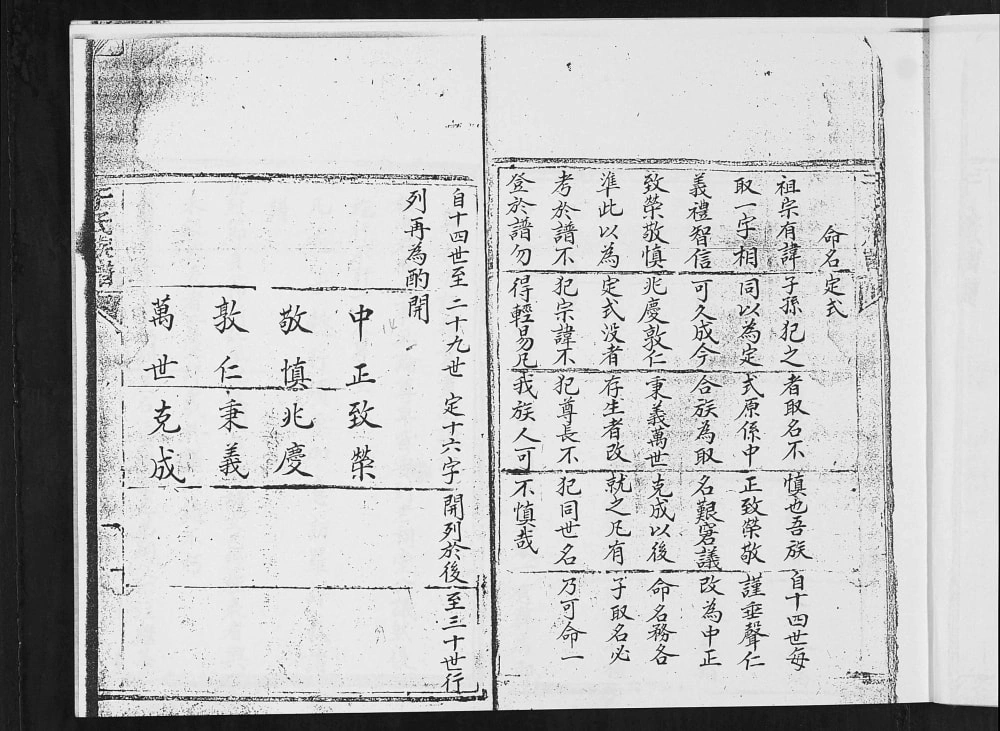 命名定式
祖宗有諱子孫犯之者取名不慎也吾族自十四世每
取一字相同以為定式原係中正致榮敬謹垂聲仁
義禮智信可久成今合族為取名艱窘議改為中正
致榮敬慎兆慶敦仁秉義萬世克成以後命名務各
準此以為定式没者存生者改就之凡有子取名必
考於譜不犯宗諱不犯尊長不犯同世名乃可命一
登於譜勿得輕易凡我族人可不慎哉
自十四世至二十九世定十六字開列於後至三十世行
列再為酌開
中正致榮
敬慎兆慶
敦仁秉義
萬世克成
氏族譜